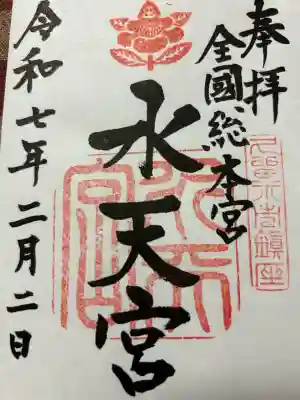 奉拝
全國総本宮
水天宮
令和七年二月二日